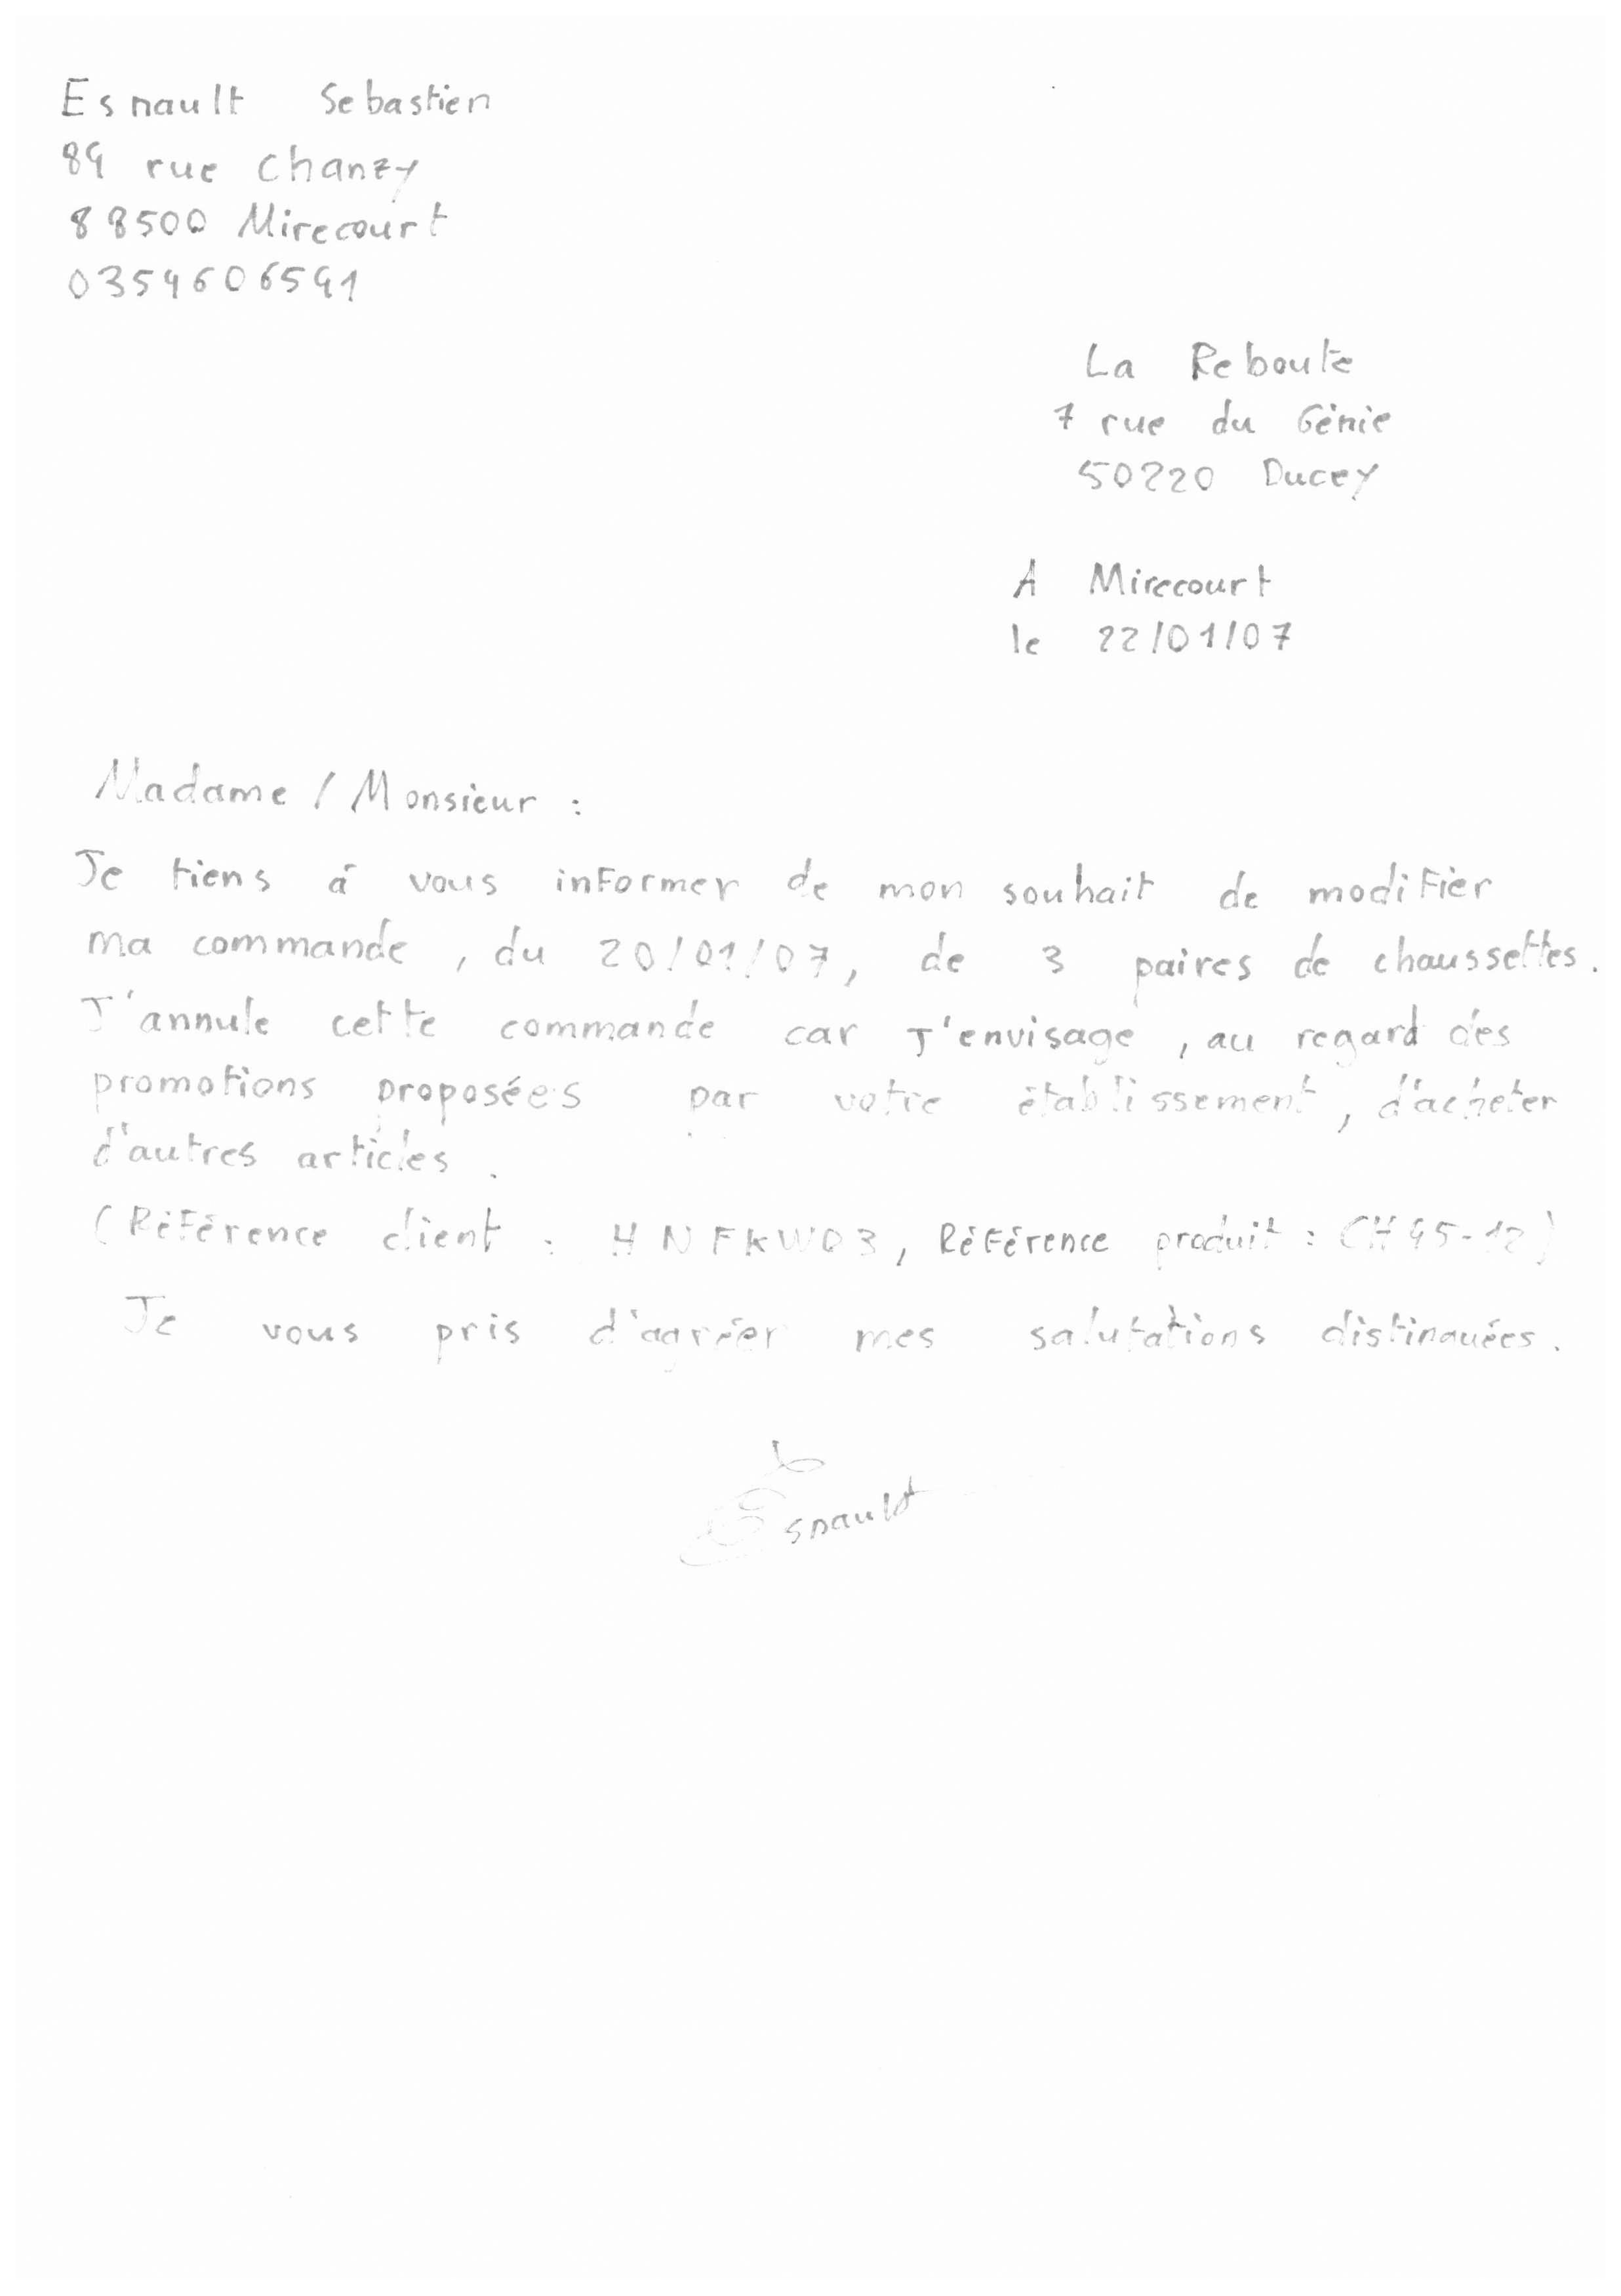 Esnault Sebastien
89 rue Chanzy
88500 Mirecourt
0354606591
La Reboute
7 rue du Génie
50220 Ducey
A Mirecourt
le 22/01/07
Madame / Monsieur :
Je tiens à vous informer de mon souhait de modifier
ma commande, du 20/01/07, de 3 paires de chaussettes.
J'annule cette commande car J'envisage, au regard des
promotions proposées par votre établissement, d'acheter
d'autres articles.
(Référence client : HNFKW03, Référence produit : CH45-12)
Je vous pris d'agréer mes salutations distinguées.
Esnault